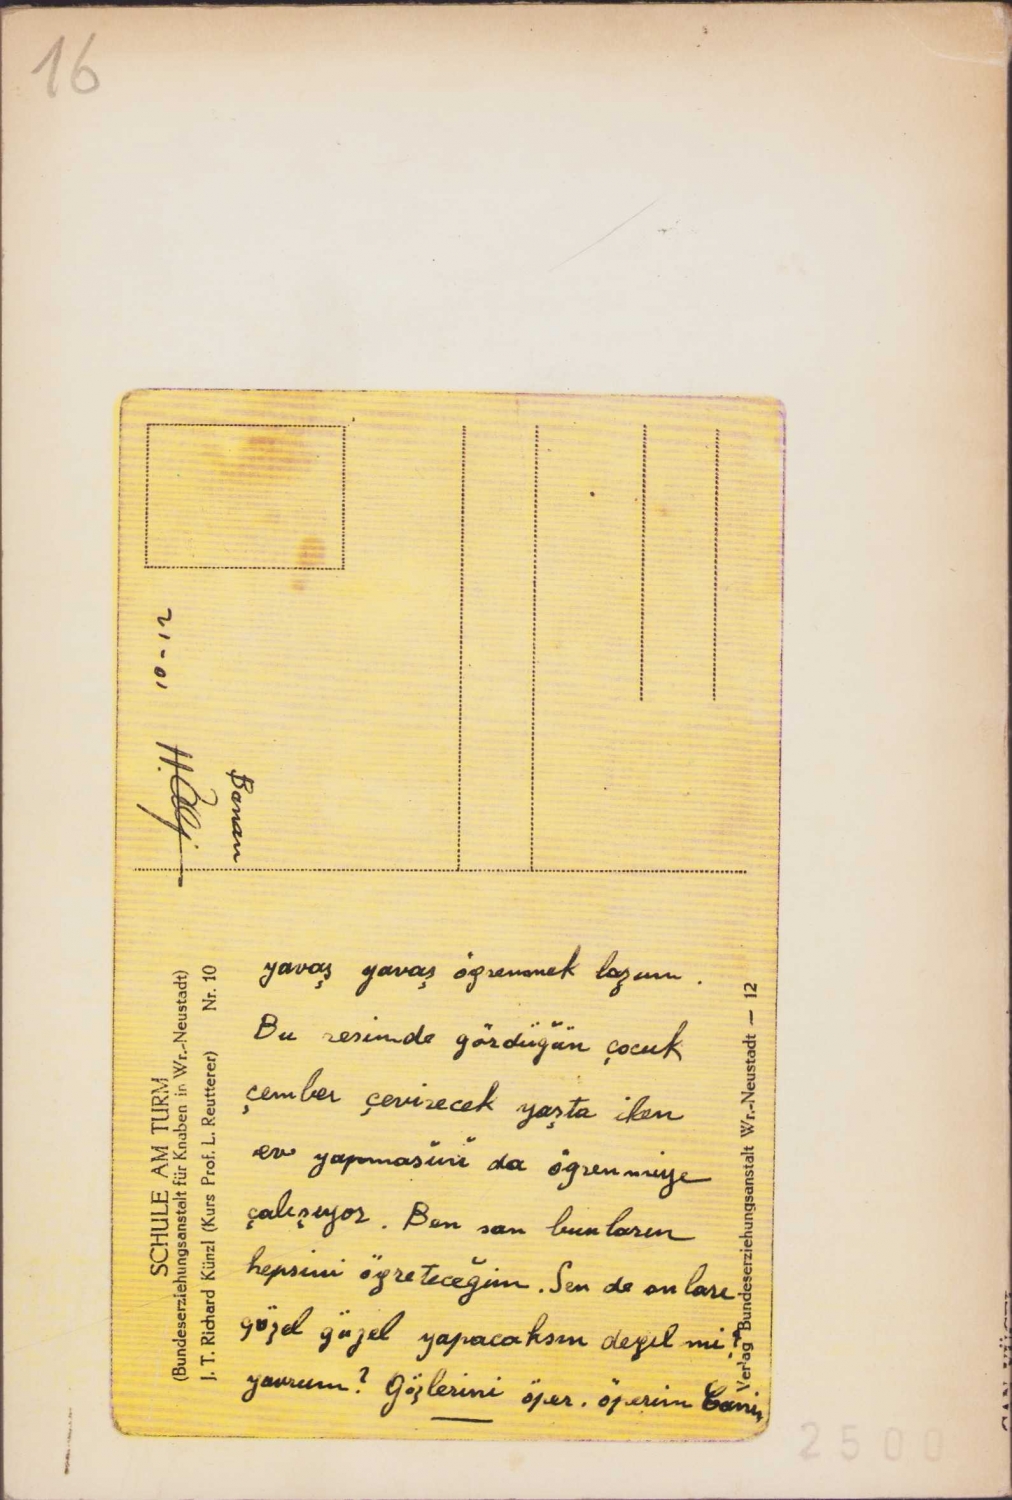 16
10-12
H. Âli
Banam
SCHULE AM TURM
(Bundeserziehungsanstalt für Knaben in Wr.-Neustadt)
J. T. Richard Künzl (Kurs Prof. L. Reutterer) Nr. 10
yavaş yavaş öğrenmek lazım.
Bu resimde gördüğün çocuk
çember çevirecek yaşta iken
ev yapmasini da öğrenmiye
çalışıyor. Ben san bunların
hepsini öğreteceğim. Sen de onları
güzel güzel yapacaksın değil mi?
yavrum? Gözlerini öper, öperim Canı,
Verlag Bundeserziehungsanstalt Wr.-Neustadt — 12
2500